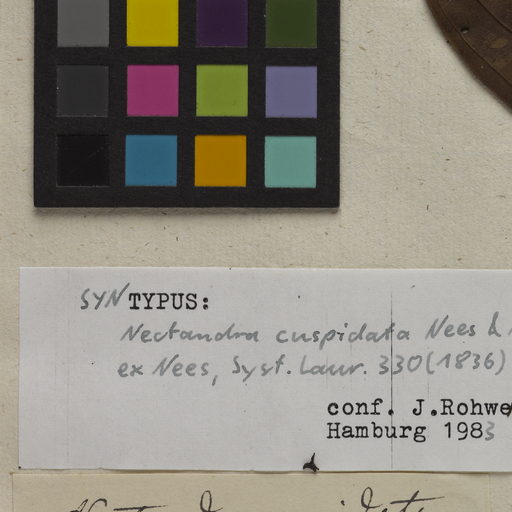 SYNTYPUS:
Nectandra cuspidata Nees &
ex Nees, Syst. Laur. 330 (1836)
conf. J.Rohwe
Hamburg 1983